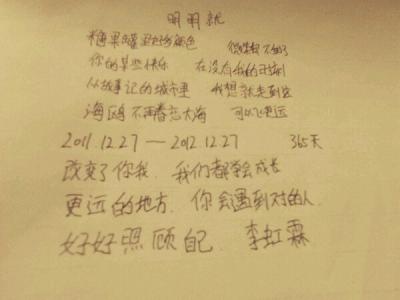 明明就
糖果罐里好多颜色 微笑却不甜了
你的某些快乐 在没有我的时刻
的城市里 我想就走到这
海鸥不再眷恋大海 可以飞更远
2011.12.27 — 2012.12.27 365天
改变了你我. 我们都学会成长
更远的地方. 你会遇到对的人.
好好照顾自己. 李虹霖